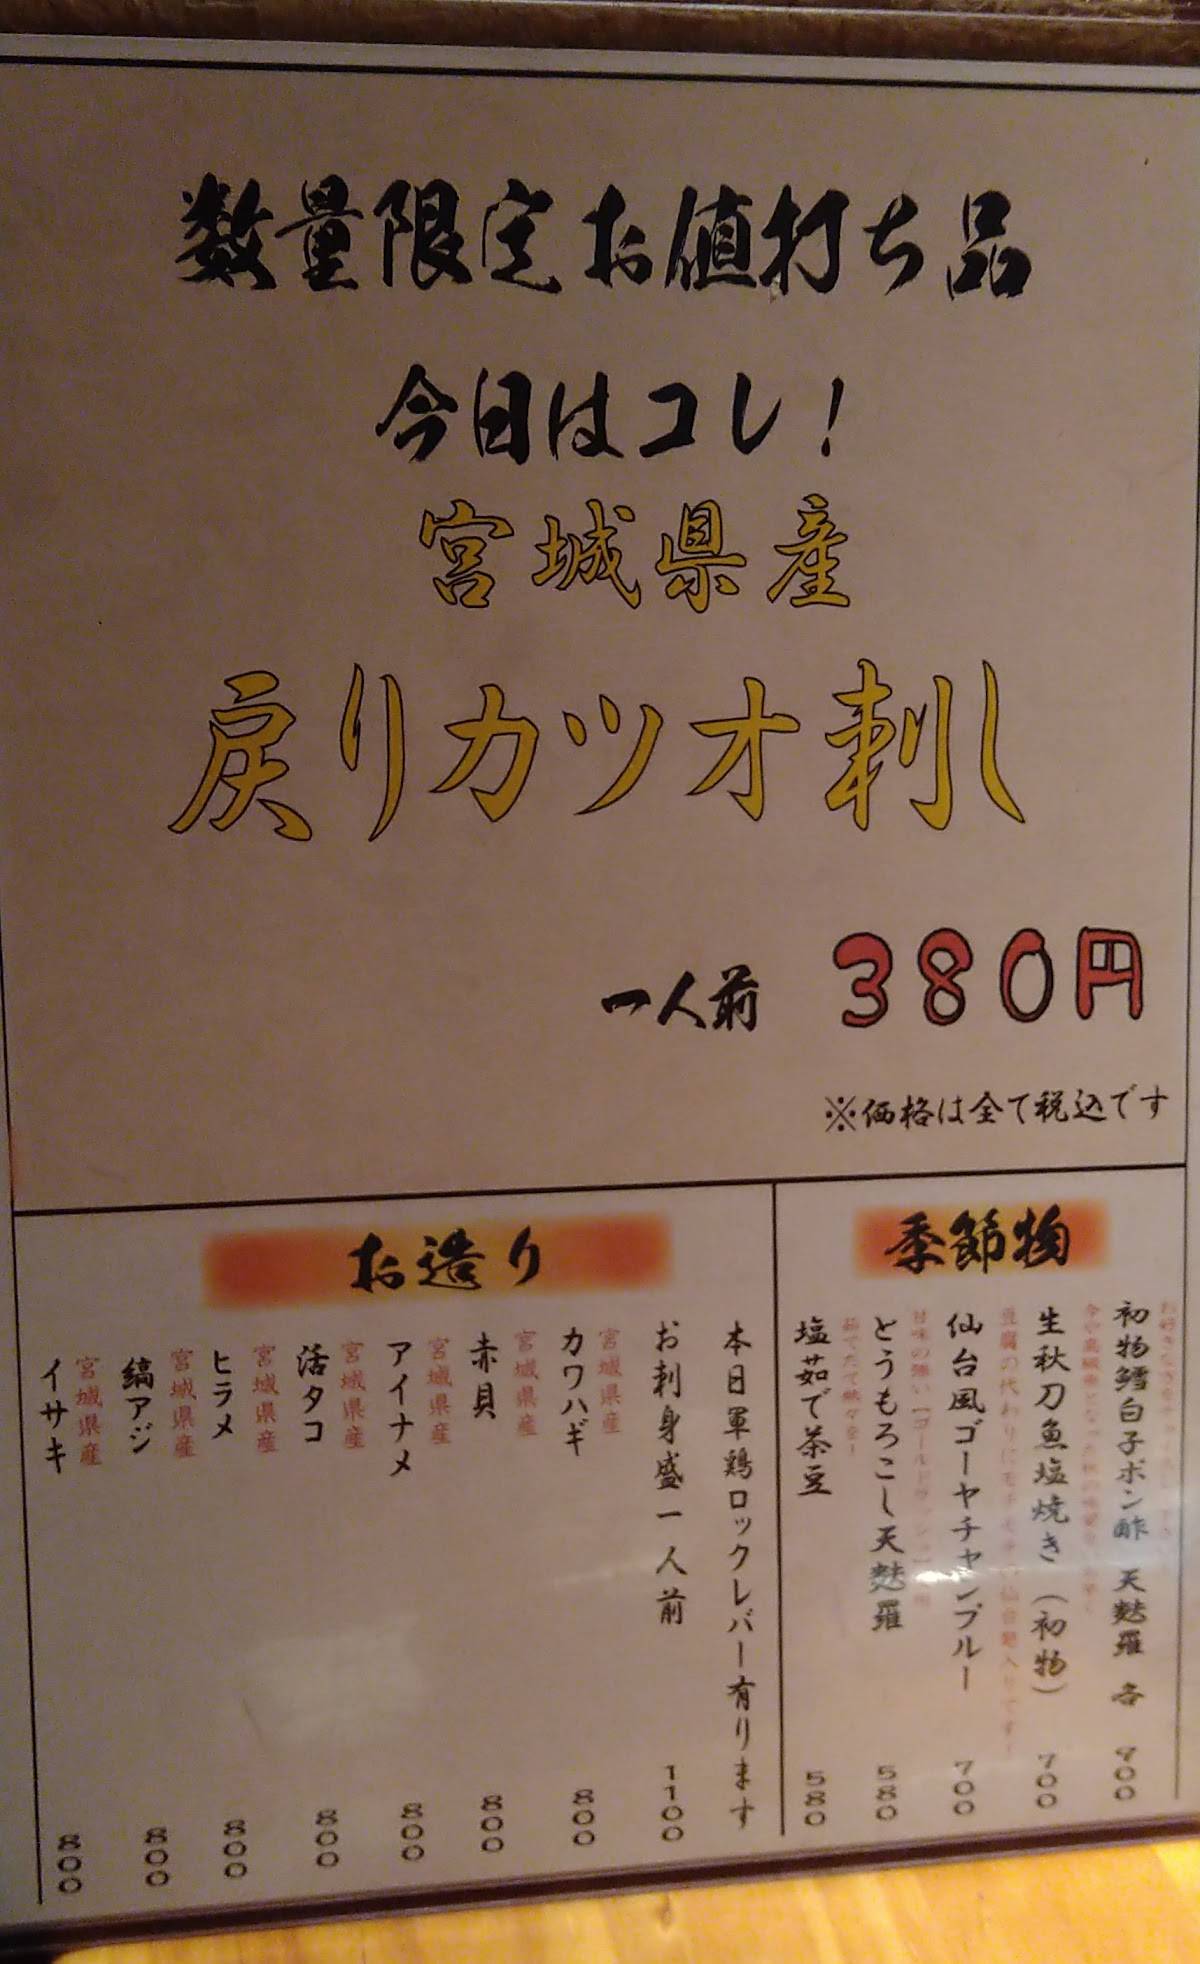 数量限定お値打ち品
今日はコレ！
宮城県産
戻りカツオ刺し
一人前 380円
※価格は全て税込です
季節物
初物鱈白子ポン酢 天麩羅 各 900
生秋刀魚塩焼き（初物） 700
豆腐の代わりにモチモチの仙台麩入りです！
仙台風ゴーヤチャンプルー 700
とうもろこし天麩羅 580
茹でたて熱々を！
塩茹で茶豆 580
お造り
本日軍鶏ロックレバー有ります
お刺身盛一人前 1100
宮城県産
カワハギ 800
宮城県産
赤貝 800
宮城県産
アイナメ 800
宮城県産
活タコ 800
宮城県産
ヒラメ 800
宮城県産
縞アジ 800
宮城県産
イサキ 800